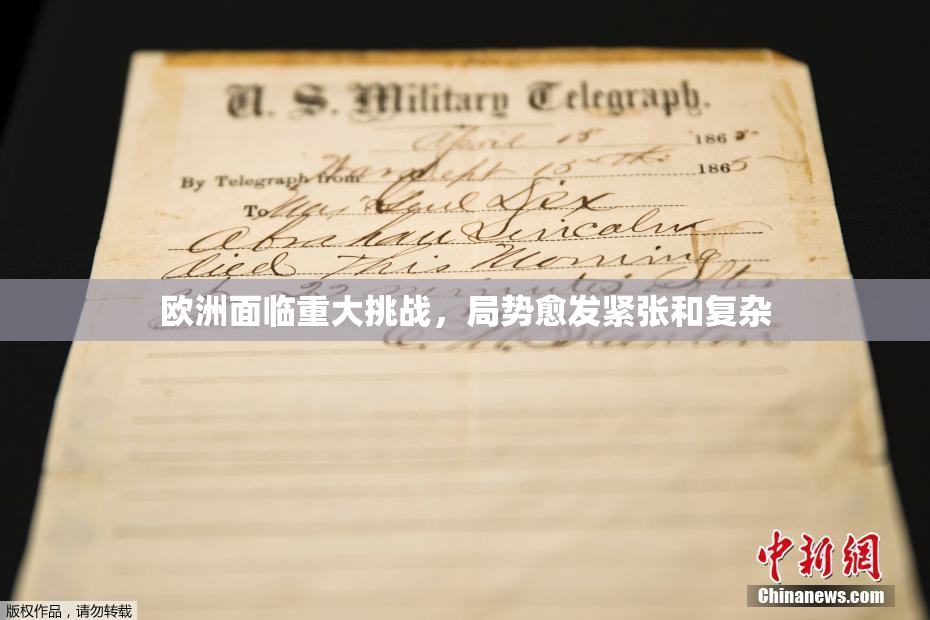 U. S. Military Telegraph.
April 15 1865
By Telegraph from War Dept 15th 1865
To Maj Genl Dix
Abraham Lincoln
died This Morning
at 22 minutes after
欧洲面临重大挑战，局势愈发紧张和复杂
中新网
Chinanews.com
版权作品，请勿转载